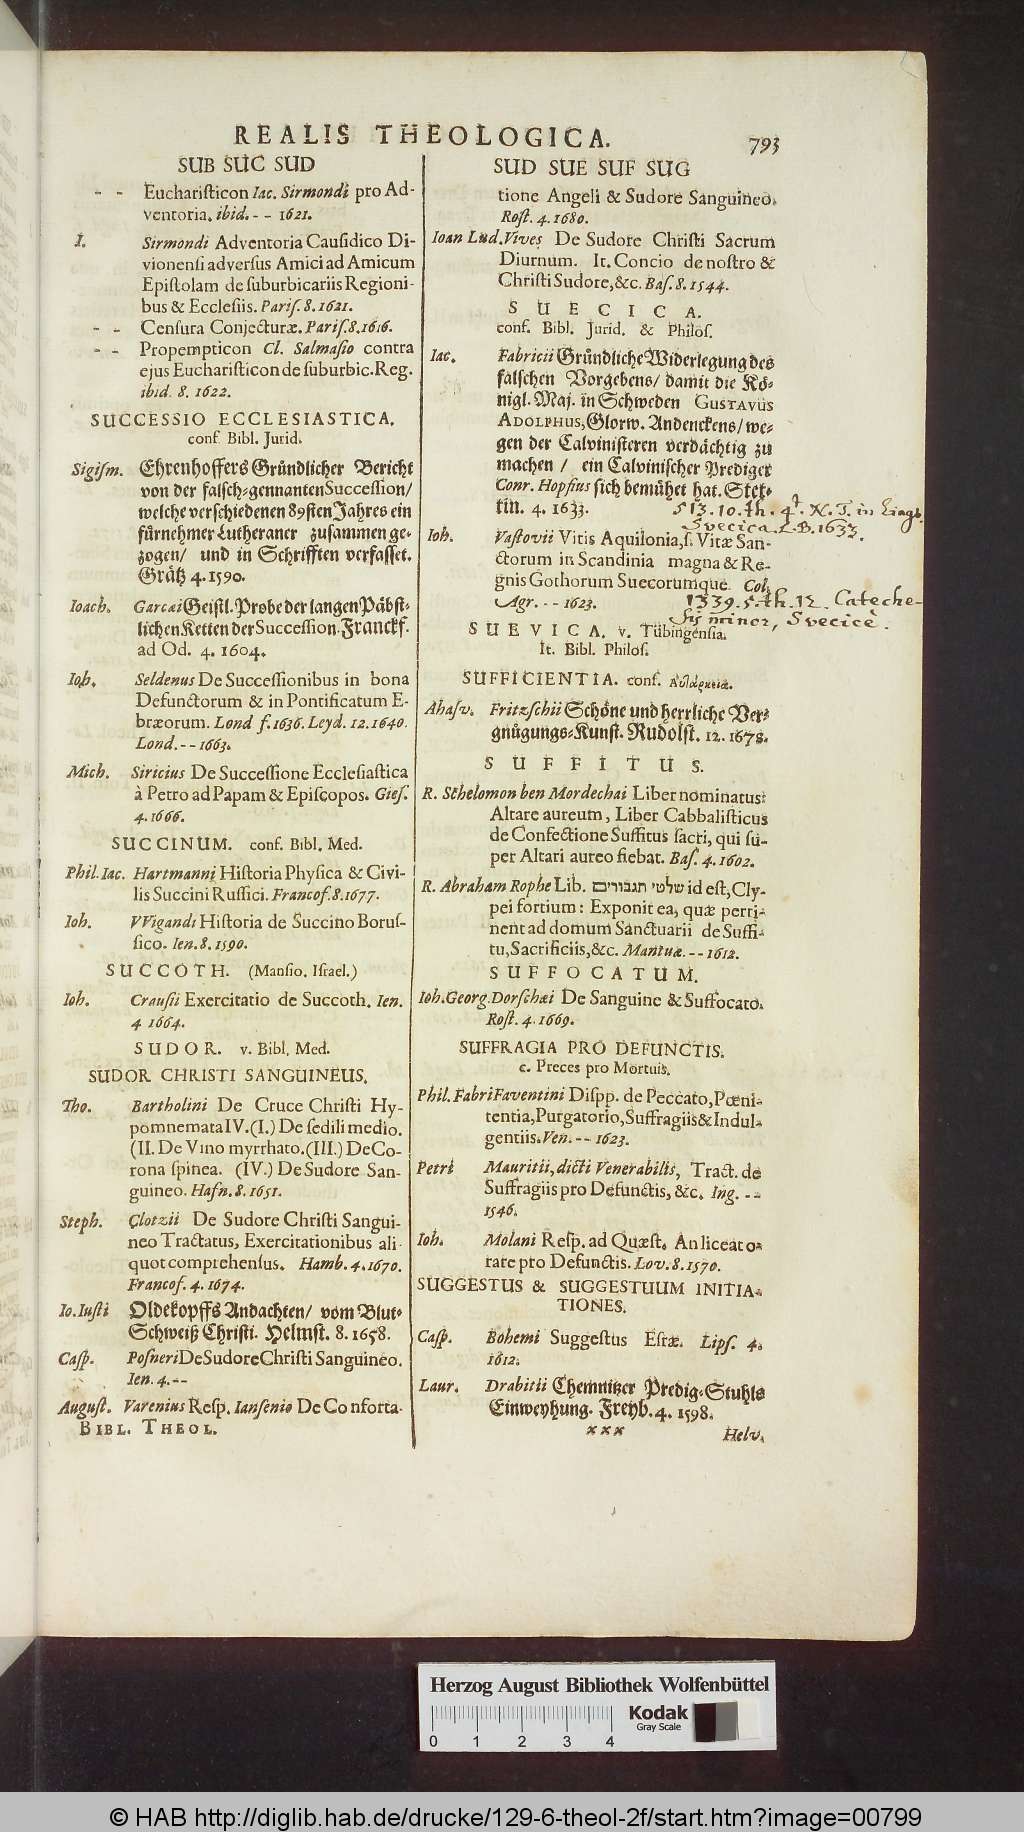 REALIS THEOLOGICA. 793
SUB SUC SUD
- - Euchariſticon Iac. Sirmondi pro Ad-
ventoria. ibid. - - 1621.
I. Sirmondi Adventoria Cauſidico Di-
vionenſi adverſus Amici ad Amicum
Epiſtolam de ſuburbicariis Regioni-
bus & Eccleſiis. Pariſ. 8. 1621.
- - Cenſura Conjecturæ. Pariſ. 8. 1616.
- - Propempticon Cl. Salmaſio contra
ejus Euchariſticon de ſuburbic. Reg.
ibid. 8. 1622.
SUCCESSIO ECCLESIASTICA.
conf. Bibl. Jurid.
Sigiſm. Ehrenhoffers Gründlicher Bericht
von der falſch-gennanten Succeſſion/
welche verſchiedenen 89ſten Jahres ein
fürnehmer Lutheraner zuſammen ge-
zogen/ und in Schrifften verfaſſet.
Grätz 4. 1590.
Ioach. Garcæi Geiſtl. Probe der langen Päbſt-
lichen Ketten der Succeſſion. Franckf.
ad Od. 4. 1604.
Ioh. Seldenus De Succeſſionibus in bona
Defunctorum & in Pontificatum E-
bræorum. Lond f. 1636. Leyd. 12. 1640.
Lond. - - 1663.
Mich. Siricius De Succeſſione Eccleſiaſtica
à Petro ad Papam & Epiſcopos. Gieſ.
4. 1666.
SUCCINUM. conf. Bibl. Med.
Phil. Iac. Hartmanni Hiſtoria Phyſica & Civi-
lis Succini Ruſſici. Francof. 8. 1677.
Ioh. VVigandi Hiſtoria de Succino Boruſ-
ſico. Ien. 8. 1590.
SUCCOTH. (Manſio. Iſrael.)
Ioh. Crauſii Exercitatio de Succoth. Ien.
4 1664.
SUDOR. v. Bibl. Med.
SUDOR CHRISTI SANGUINEUS.
Tho. Bartholini De Cruce Chriſti Hy-
pomnemata IV. (I.) De ſedili medio.
(II. De Vino myrrhato. (III.) De Co-
rona ſpinea. (IV.) De Sudore San-
guineo. Hafn. 8. 1651.
Steph. Clotzii De Sudore Chriſti Sangui-
neo Tractatus, Exercitationibus ali-
quot comprehenſus. Hamb. 4. 1670.
Francof. 4. 1674.
Io. Iuſti Oldekopffs Andachten/ vom Blut-
Schweiß Chriſti. Helmſt. 8. 1658.
Caſp. Poſneri De Sudore Chriſti Sanguineo.
Ien. 4. - -
Auguſt. Varenius Reſp. Ianſenio De Conforta-
BIBL. THEOL.
SUD SUE SUF SUG
tione Angeli & Sudore Sanguineo.
Roſt. 4. 1680.
Ioan Lud. Vives De Sudore Chriſti Sacrum
Diurnum. It. Concio de noſtro &
Chriſti Sudore, &c. Baſ. 8. 1544.
SUECICA.
conf. Bibl. Jurid. & Philoſ.
Iac. Fabricii Gründliche Widerlegung des
falſchen Vorgebens/ damit die Kö-
nigl. Maj. in Schweden GUSTAVUS
ADOLPHUS, Glorw. Andenckens/ we-
gen der Calviniſteren verdächtig zu
machen/ ein Calviniſcher Prediger
Conr. Hopfius ſich bemühet hat. Stet-
tin. 4. 1633.
513. 10. th. 4t. N. T. in Lingv.
Svecica L.B. 1633.
Ioh. Vaſtovii Vitis Aquilonia, ſ. Vitæ San-
ctorum in Scandinia magna & Re-
gnis Gothorum Suecorumque. Col.
Agr. - - 1623.
1339. 5. th. 12 Cateche-
sis minor, Svecicè.
SUEVICA. v. Tübingenſia.
It. Bibl. Philoſ.
SUFFICIENTIA. conf. Αυτάρκεια.
Ahaſv. Fritzſchii Schöne und herrliche Ver-
gnügungs-Kunſt. Rudolſt. 12. 1678.
SUFFITUS.
R. Schelomon ben Mordechai Liber nominatus:
Altare aureum, Liber Cabbaliſticus
de Confectione Suffitus ſacri, qui ſu-
per Altari aureo fiebat. Baſ. 4. 1602.
R. Abraham Rophe Lib. שלטי תגבורים id eſt, Cly-
pei fortium: Exponit ea, quæ perti-
nent ad domum Sanctuarii de Suffi-
tu, Sacrificiis, &c. Mantuæ. - - 1612.
SUFFOCATUM.
Ioh. Georg. Dorſchæi De Sanguine & Suffocato.
Roſt. 4. 1669.
SUFFRAGIA PRO DEFUNCTIS.
c. Preces pro Mortuis.
Phil. Fabri Faventini Diſpp. de Peccato, Pœni-
tentia, Purgatorio, Suffragiis & Indul-
gentiis. Ven. - - 1623.
Petri Mauritii, dicti Venerabilis, Tract. de
Suffragiis pro Defunctis, &c. Ing. - -
1546.
Ioh. Molani Reſp. ad Quæſt. An liceat o-
rare pro Defunctis. Lov. 8. 1570.
SUGGESTUS & SUGGESTUUM INITIA-
TIONES.
Caſp. Bohemi Suggeſtus Eſræ. Lipſ. 4.
1612.
Laur. Drabitii Chemnitzer Predig-Stuhls
Einweyhung. Freyb. 4. 1598.
xxx Helv.
Herzog August Bibliothek Wolfenbüttel
Kodak
Gray Scale
0 1 2 3 4
© HAB http://diglib.hab.de/drucke/129-6-theol-2f/start.htm?image=00799